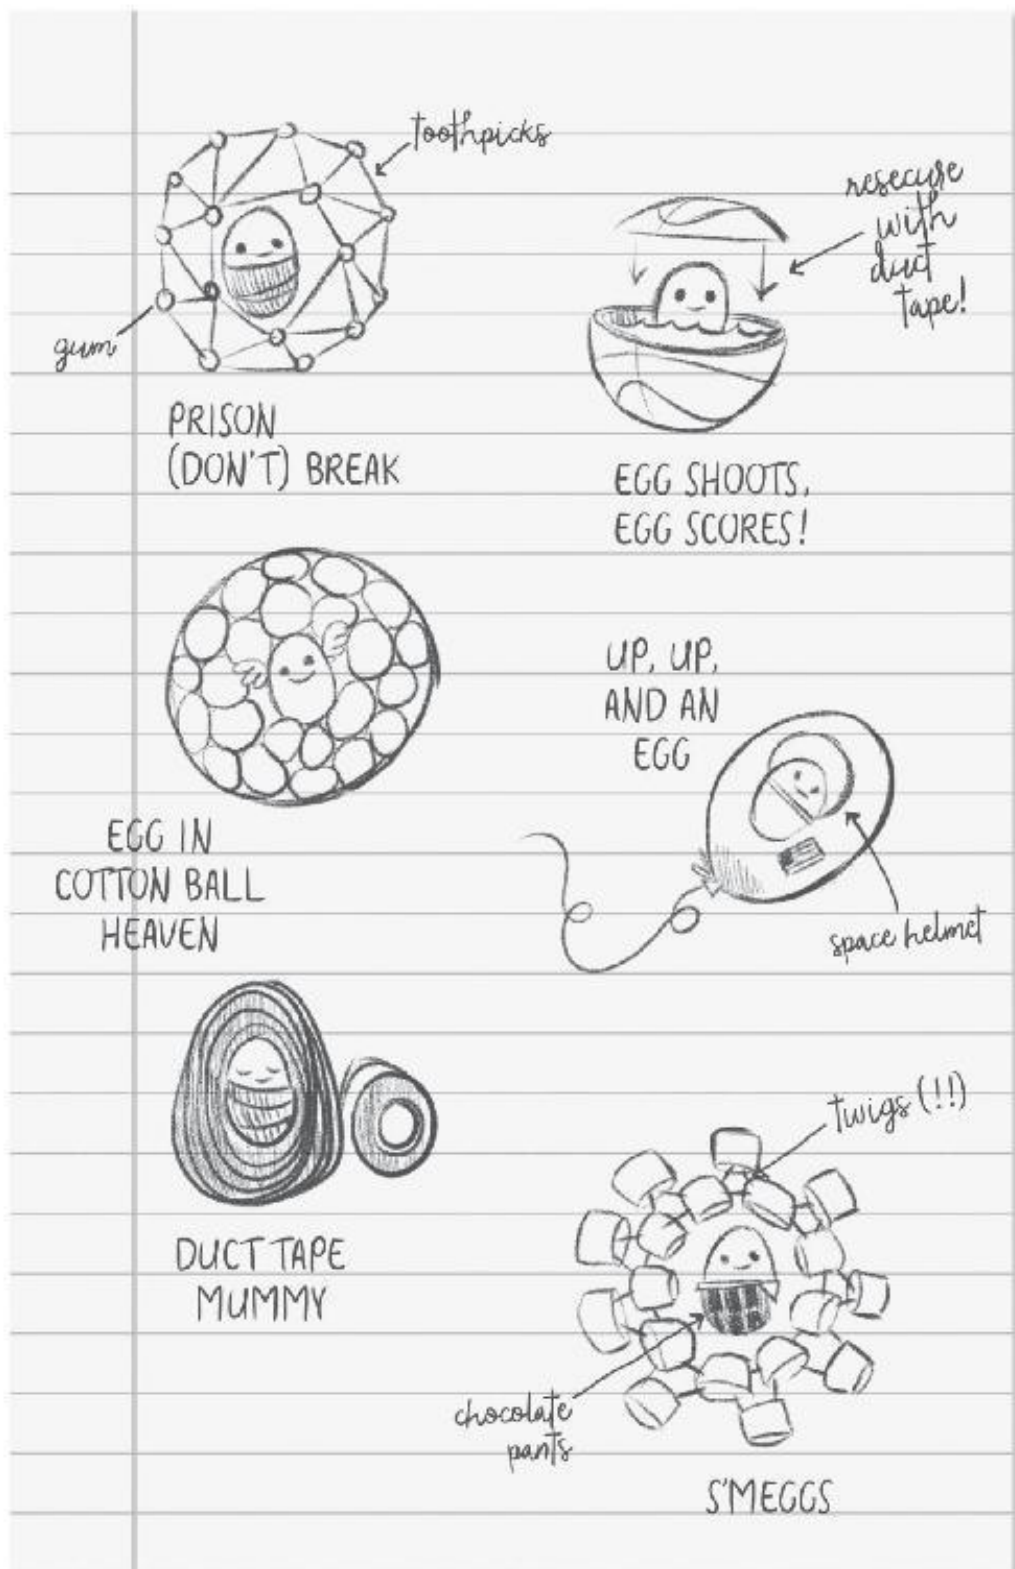 toothpicks
gum
PRISON
(DON'T) BREAK
resecure
with
duct
tape!
EGG SHOOTS,
EGG SCORES!
EGG IN
COTTON BALL
HEAVEN
UP, UP,
AND AN
EGG
space helmet
DUCT TAPE
MUMMY
twigs (!!)
chocolate
pants
S'MEGGS